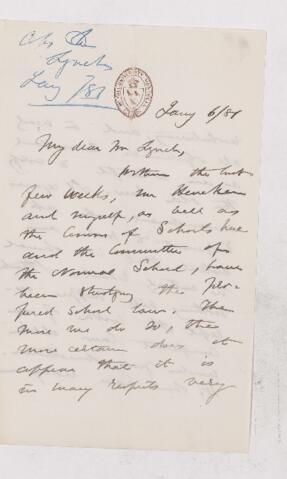 Lynch
Jany 7/81
Jany 6/81
My dear Mr Lynch,
Within the last
few weeks, Mr
and myself, as well as
the Comrs of Schools here
and the Committee of
the Normal School, have
been studying the pro-
posed School law. The
more we do so, the
more certain does it
appear that it is
in many respects very